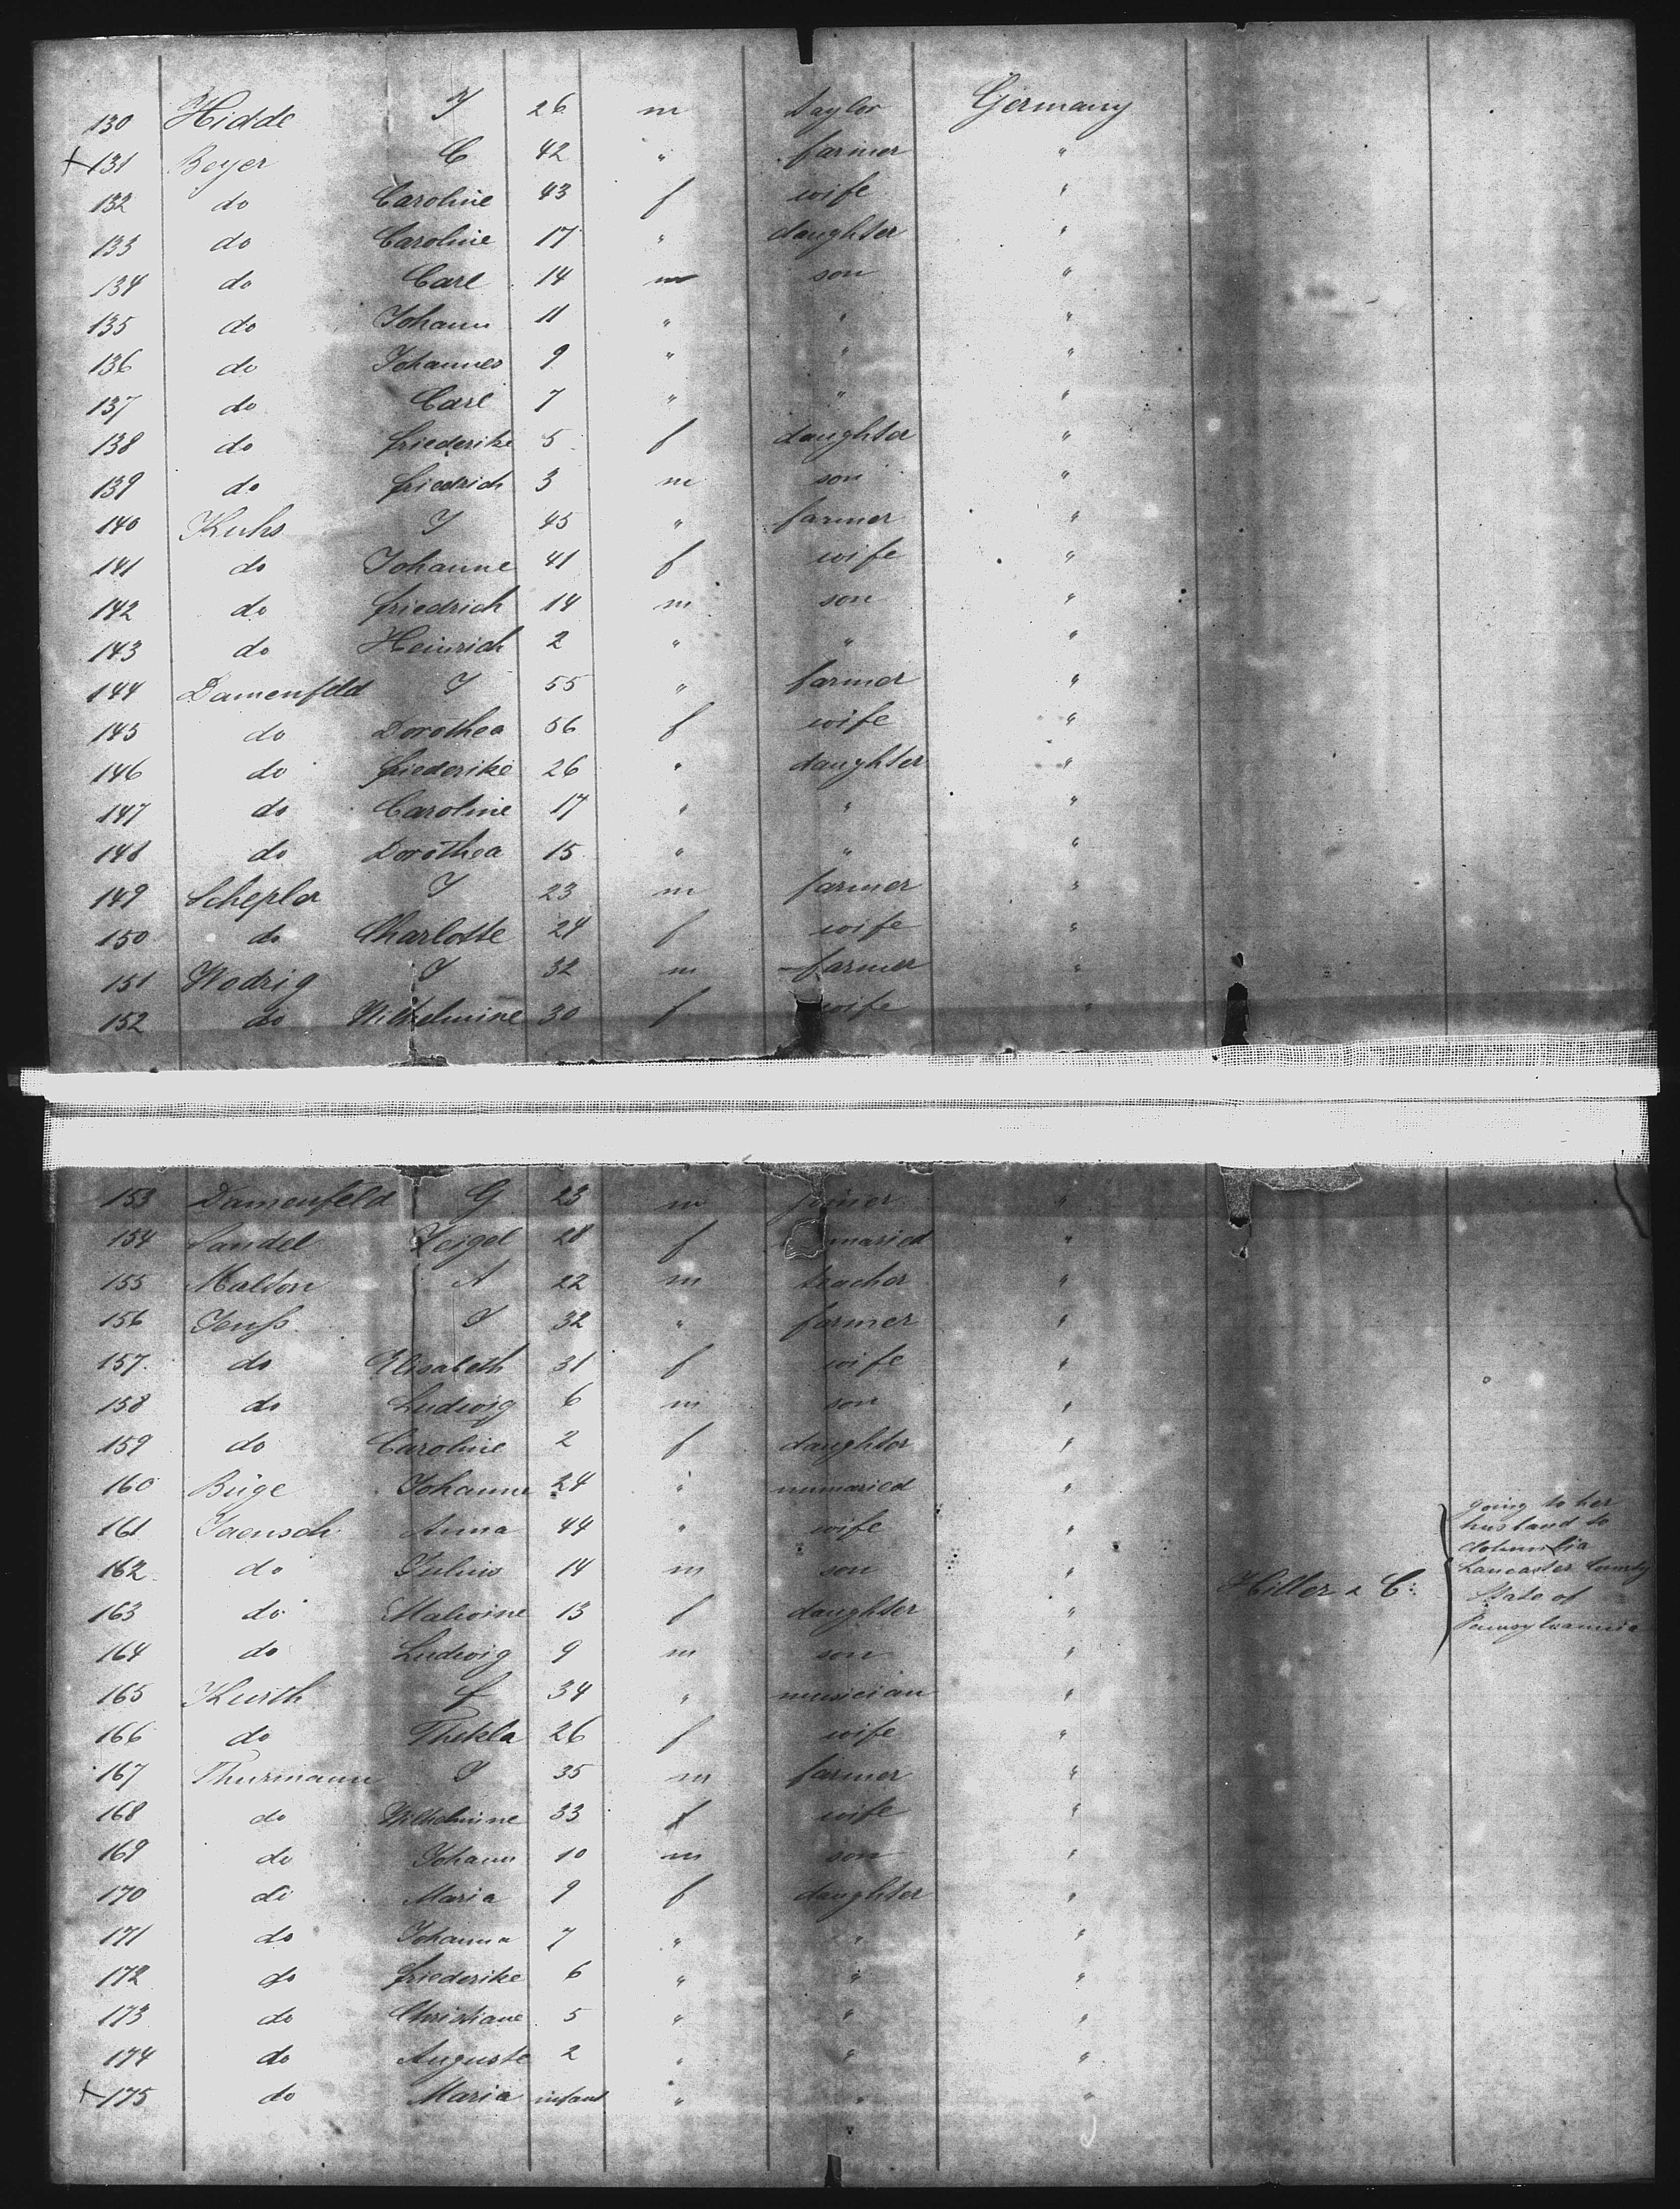 130 Hidde J 26 m taylor Germany
+ 131 Beyer C 42 " farmer "
132 do Caroline 43 f wife "
133 do Caroline 17 " daughter "
134 do Carl 14 m son "
135 do Johann 11 " " "
136 do Johannes 9 " " "
137 do Carl 7 " " "
138 do friederike 5 f daughter "
139 do friedrich 3 m son "
140 Kuhs J 45 " farmer "
141 do Johanne 41 f wife "
142 do friedrich 14 m son "
143 do Heinrich 2 " " "
144 Damenfeld J 55 " farmer "
145 do Dorothea 56 f wife "
146 do friederike 26 " daughter "
147 do Caroline 17 " " "
148 do Dorothea 15 " " "
149 Schepler J 23 m farmer "
150 do Charlotte 24 f wife "
151 Wodrig J 32 m farmer "
152 do Wilhelmine 30 f wife "
153 Damenfeld G 23 m joiner "
154 Sandel Zeigel 28 f "
155 Maldon A 22 m teacher "
156 Jenß J 32 " farmer "
157 do Elisabeth 31 f wife "
158 do Ludwig 6 m son "
159 do Caroline 2 f daughter "
160 Büge Johanne 24 " unmaried "
161 Jaensch Anna 44 " wife " going to her
husband to
Columbia
162 do Julius 14 m son " Hiller & C: Lancaster County
163 do Malwine 13 f daughter " State of
Pennsylvannia
164 do Ludwig 9 m son "
165 Kurth f 34 " musician "
166 do Thekla 26 f wife "
167 Thurmann J 35 m farmer "
168 do Wilhelmine 33 f wife "
169 do Johann 10 m son "
170 do Maria 9 f daughter "
171 do Johanna 7 " " "
172 do friederike 6 " " "
173 do Christiane 5 " " "
174 do Auguste 2 " " "
+ 175 do Maria infant " " "